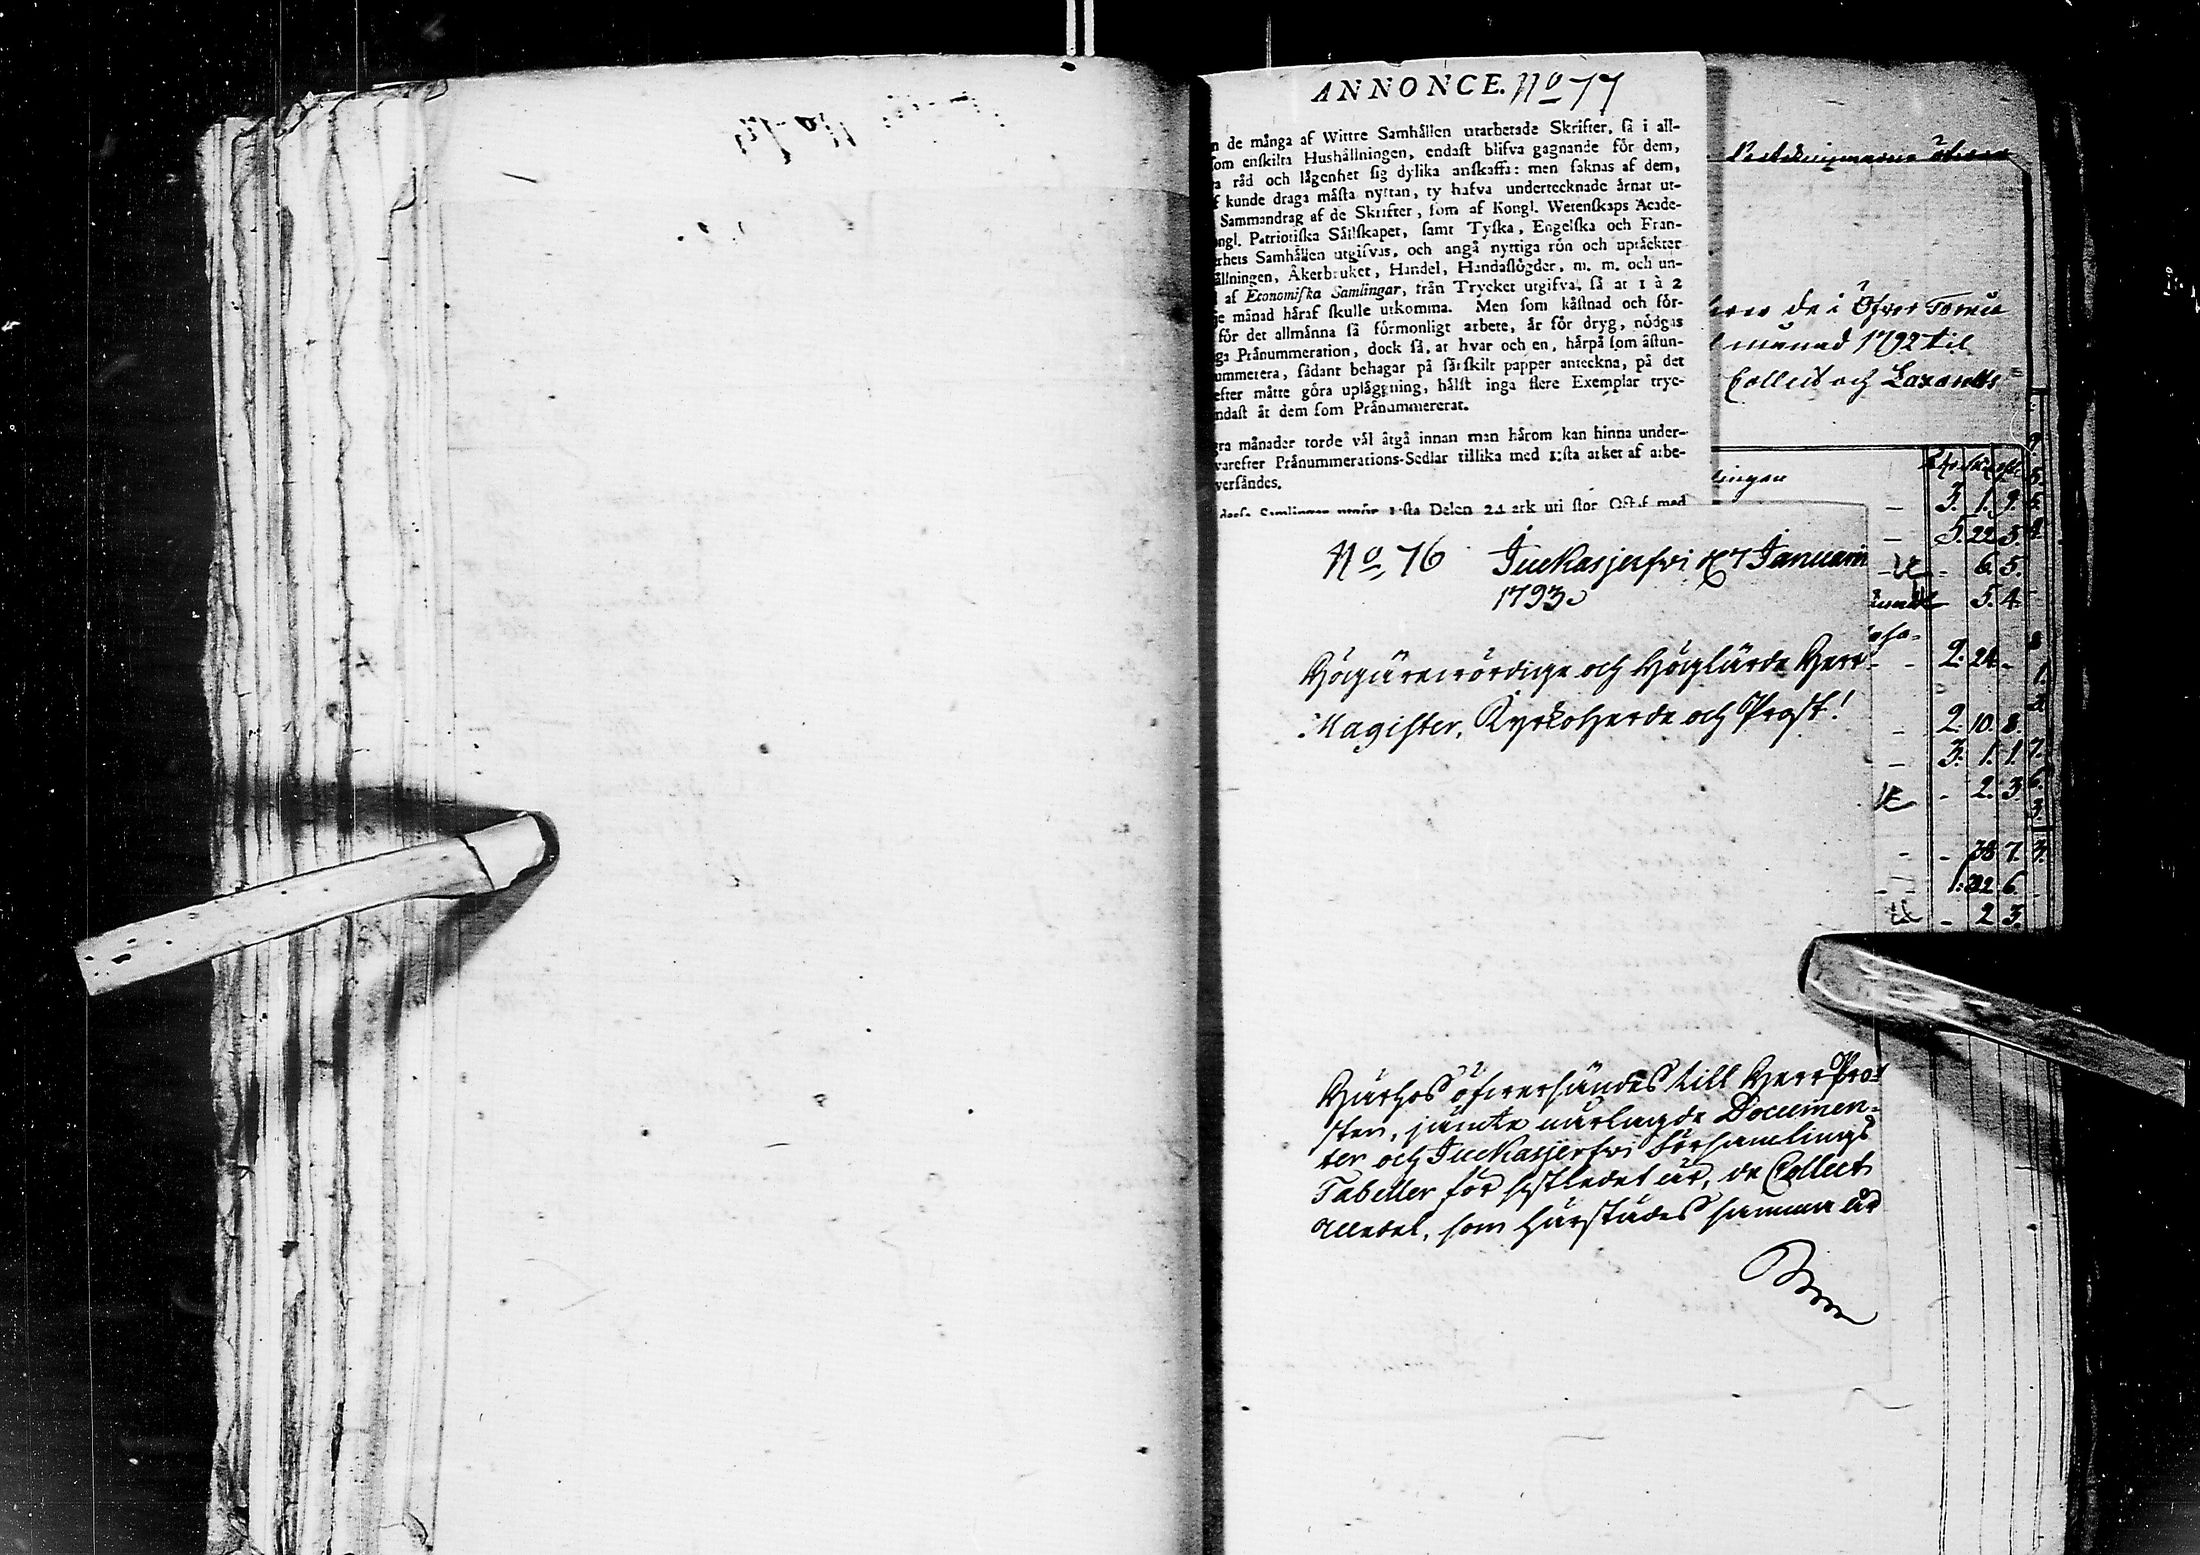 ANNONCE. No 77
de många af Wittre Samhällen utarbetade Skrifter, så i all-
som enskilta Hushållningen, endast blifva gagnande för dem,
råd och lågenhet sig dylika anskaffa: men saknas af dem,
kunde draga måsta nyttan, ty hafva undertecknade årnat ut-
Sammandrag af de Skrifter, som af Kongl. Wetenskaps Acade-
ngl. Patriotiska Sållskapet, samt Tyska, Engelska och Fran-
rhets Samhållen utgifvas, och angå nyttiga rön och uptåckter
ållningen, Åkerbruket, Handel, Handaslögder, m. m. och un-
af Economiska Samlingar, från Trycket utgifva, så at 1 à 2
je månad håraf skulle utkomma. Men som kåstnad och för-
för det allmånna så förmonligt arbete, år för dryg, nödgas
ga Prånummeration, dock så, at hvar och en, hårpå som åstun-
ummerera, sådant behagar på sårskilt papper anteckna, på det
efter måtte göra uplåggning, hålst inga flere Exemplar tryc-
ndast åt dem som Prånummererat.
gra månader torde vål åtgå innan man hårom kan hinna under-
varefter Prånummerations-Sedlar tillika med 1:sta arket af arbe-
versåndes.
desse Samlingar utgör 1:sta Delen 24 ark uti stor Octaf med
No 76 Juckasjerfwi d. 7 Januarii
1793.
Högärewördige och Höglärde Herr
Magister, Kyrkoherde och Prost!
Härhos öfwersändes till Herr Pro-
sten, jämte närlagde Documen-
ter och Juckasjerfwi Församlings
Tabeller för sistledet år, de Collect
Medel, som härstädes samma år
de i Öfver Torneå
månad 1792 til
Collect och Lazaretts
lingen
3. 1. 9.
5. 22. 3.
6. 5.
5. 4.
2. 24. -
2. 10. 8.
3. 1. 1.
2. 3.
- 38 7.
1. 22 6.
- 2 3.